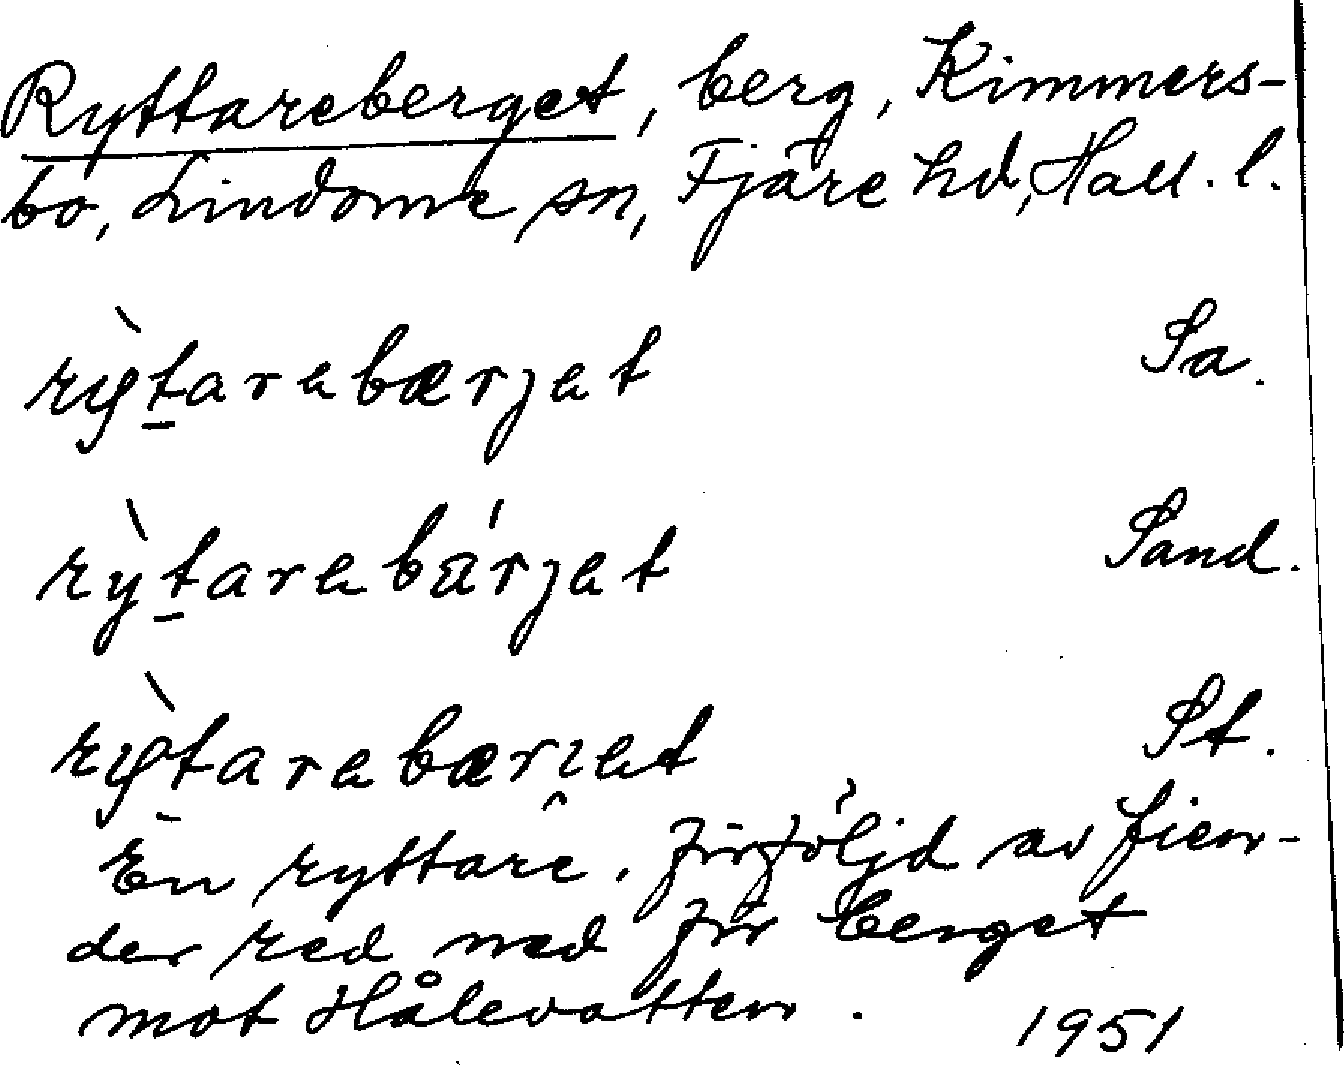 Ryttareberget, berg, Kimmers-
bo, Lindome sn, Fjäre hd, Hall. l.
rỳtarebærjet Sa.
rỳtarebárjet Sand.
rỳtarebæri̯et St.
En ryttare, förföljd av fien-
der red ned för berget
mot Hålevatten.
1951